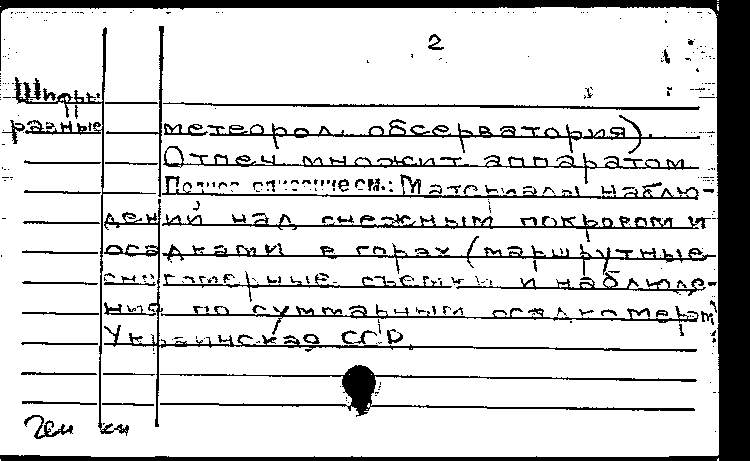 2
Шифры
разные
метеорол. обсерватория).
Отпеч. множит. аппаратом
Полное описание см.: Материалы наблю-
дений над снежным покровом и
осадками в горах (маршрутные
снегомерные съемки и наблюде-
ния по суммарным осадкомерам)
Украинская ССР.